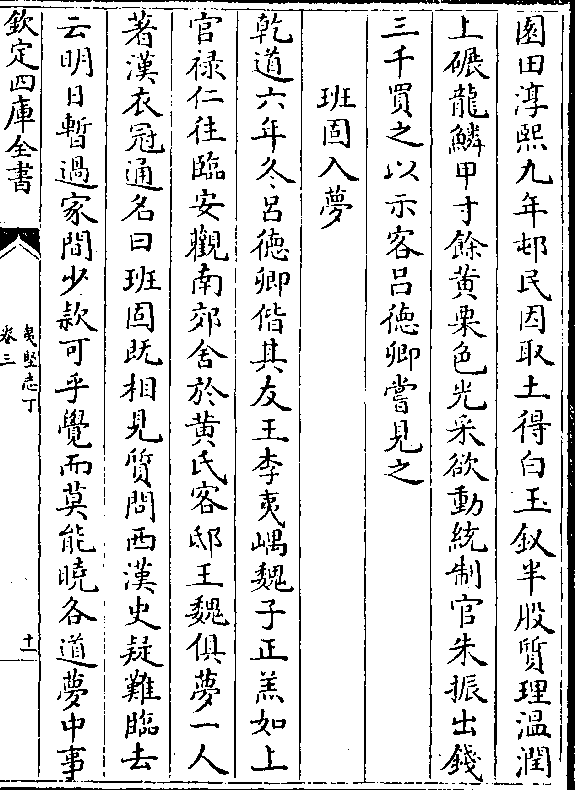 園田淳熙九年邨民因取土得白玉釵半股質理溫潤
上碾龍鱗甲寸餘黃栗色光采欲動統制官朱振出錢
三千買之以示客呂徳卿嘗見之
班固入夢
乾道六年冬呂徳卿偕其友王季夷嵎魏子正羔如上
官祿仁往臨安觀南郊舍於黃氏客邸王魏俱夢一人
著漢衣冠通名曰班固既相見質問西漢史疑難臨去
云明日暫過家間少款可乎覺而莫能曉各道夢中事
欽定四庫全書
夷堅志丁
卷三
十一